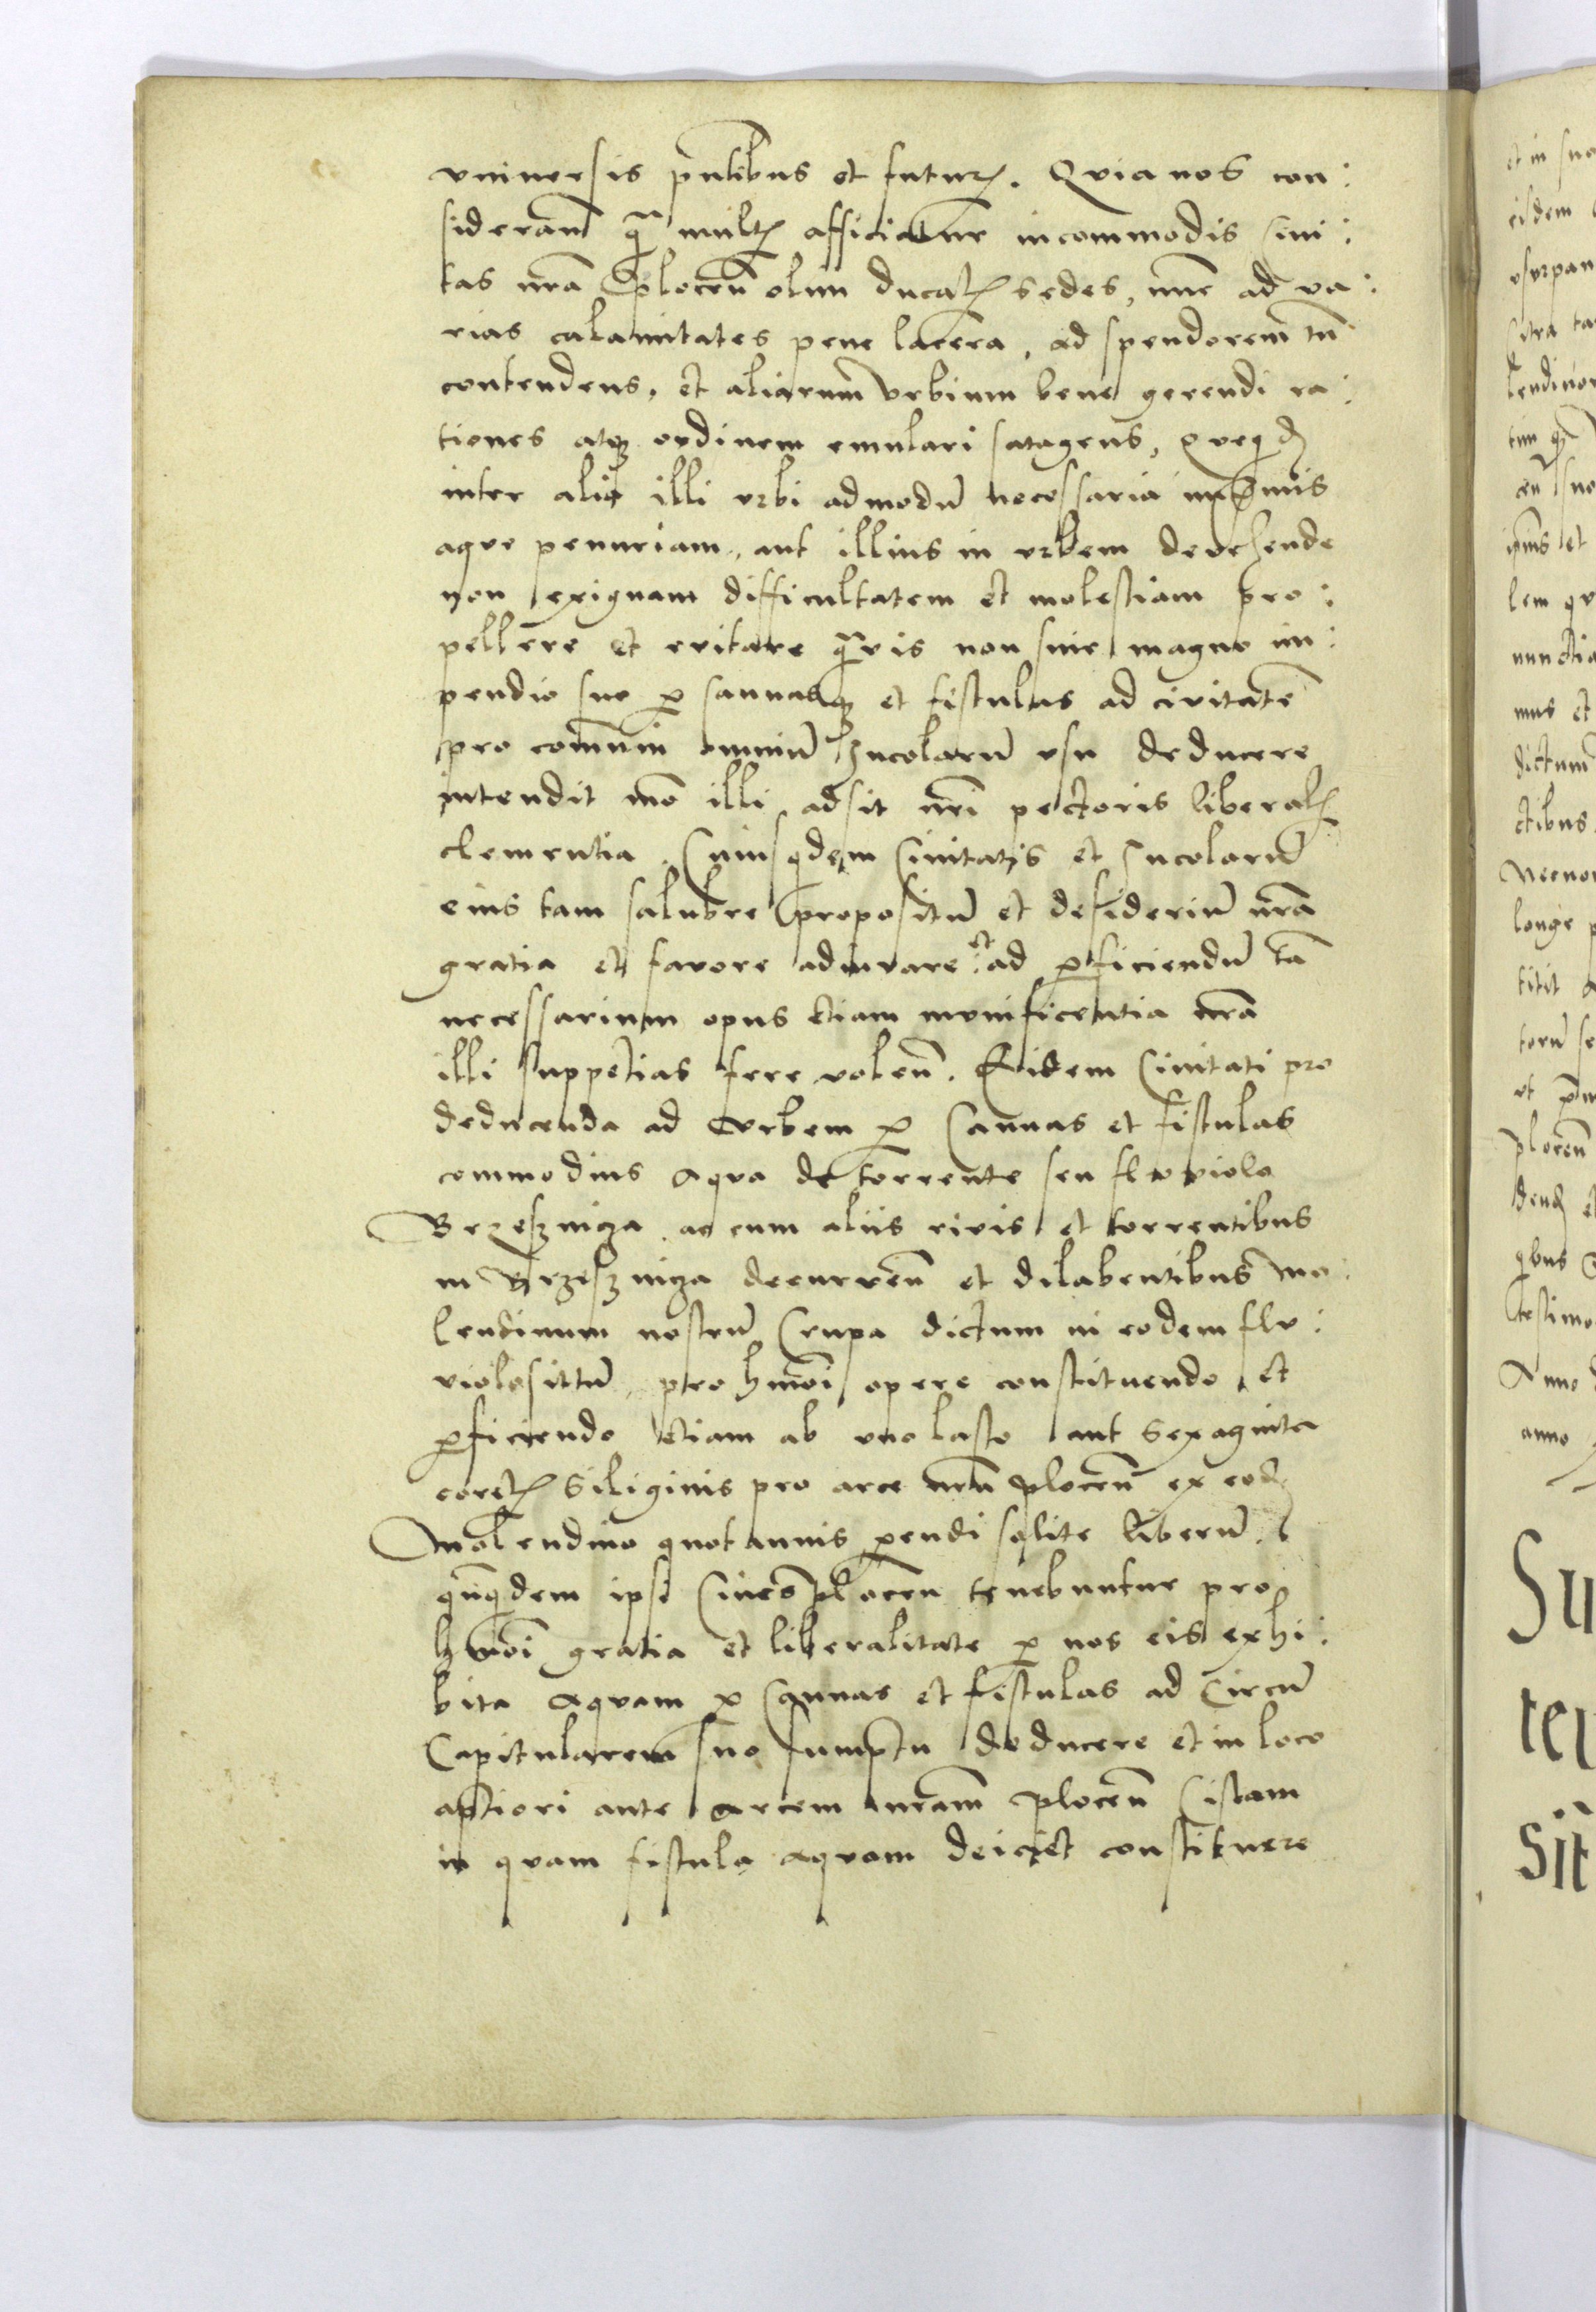 vniuersis pñtibus et futur. Quia nos con:
siderañ q̃ mult afficiatur incommodis Ciui:
tas nr̃a Plocen̄ olim ducat sedes, nũc ad va:
rias calamitates pene lacera, ad spendorem tñ
contendens, et aliarum vrbium bene gerendi ra:
tiones atqʒ ordinem emulari satagens,
inter alia illi vrbi admodũ necessaria inp̃mis
aque penuriam, aut illius in vrbem devehende
non exiguam difficultatem et molestiam pro:
pellere et evitare q̃vis non sine magno im:
pendio suo ꝑ cannasqʒ et fistulas ad civitatẽ
pro com̃uni omniũ Incolarũ vsu deducere
intendit mõ illi adsit nr̃i pectoris liberal
clementia. Cuius qdem Ciuitatis et Incolarũ
eius tam salubre propositũ et desideriũ nr̃a
gratia et favore adiuvare: et ad ꝑficiendũ tã
necessarium opus etiam munificentia nr̃a
illi suppetias fere volen̄. Eidem Ciuitati pro
deducenda ad vrbem ꝑ Cannas et fistulas
commodius aqua de torrente seu fluviolo
Brzesznicza ac cum aliis rivis et torrentibus
in Brzesznicza decurren̄ et dilabentibus mo:
lendinum nostrũ Crupa dictum in eodem flu:
violo sittũ, pro hm̃oi opere constituendo et
ꝑficiendo etiam ab vno lasto aut sexaginta
coret siliginis pro arce nr̃a Plocen̄ ex eod
Molendino quotannis pendi solite liberũ.
qñqdem ipsi Ciues Plocen̄ tenebuntur pro
hm̃oi gratia et liberalitate ꝑ nos eis exhi:
bita aquam ꝑ Cannas et fistulas ad Circũ
Capitularem suo sumptu deducere et in loco
aptiori ante arcem nr̃am Plocen̄ Cistam
in quam fistula aquam deiciet constituere
et in suo
eidem
vsurpan
citra
lendinor
tim
cen̄ suo
ip̃ius et
lem qu
nunctia
mus et
dictum
ctibus
Necnon
longe p
titit
torũ se
et
Plocen̄
dend et
qbus
testimo
Anno d
anno
Su
ter
sit